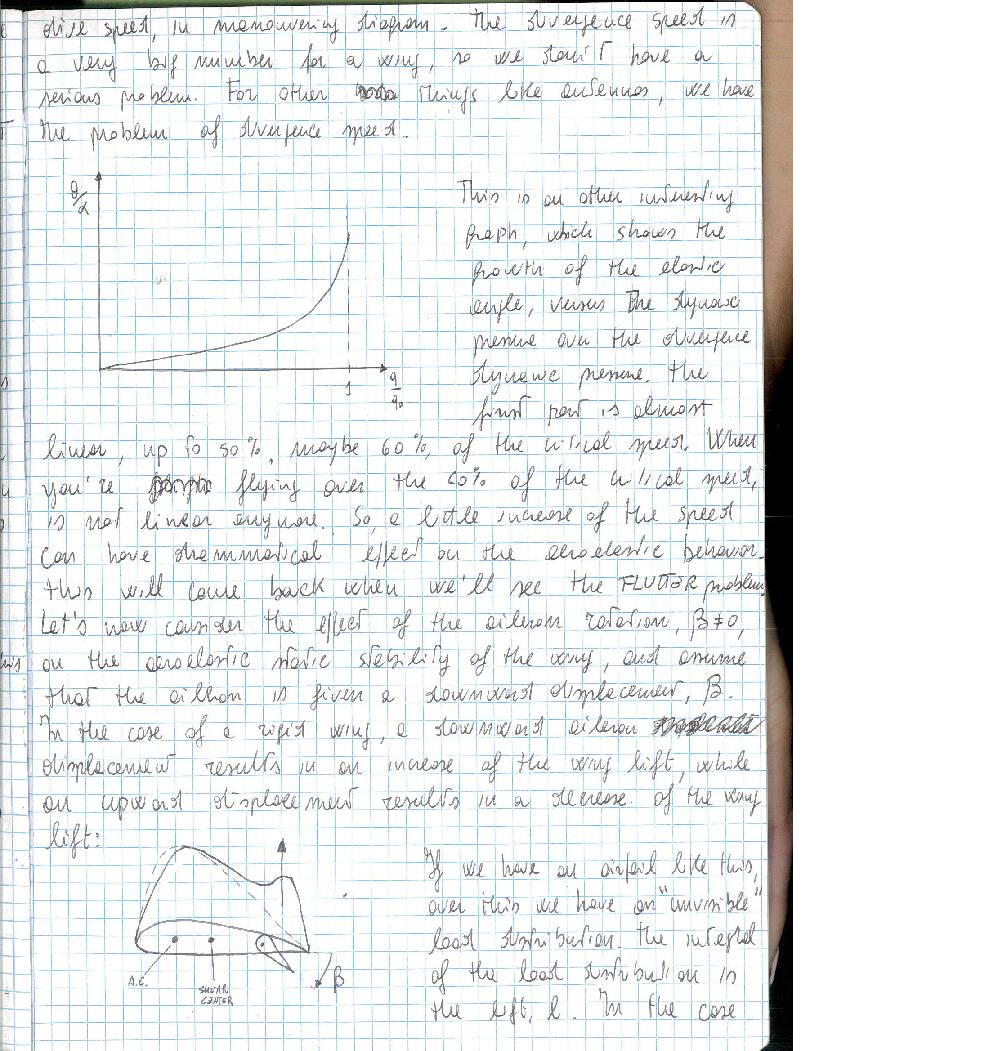 dive speed, in manouvering diagram. The divergence speed is
a very big number for a wing, so we don't have a
serious problem. For other things like antennas, we have
the problem of divergence speed.
θ/α
This is an other interesting
graph, which shows the
growth of the elastic
angle, versus the dynamic
pressure over the divergence
dynamic pressure. The
first part is almost
1
q/qD
linear, up to 50%, maybe 60%, of the critical speed. When
you're flying over the 60% of the critical speed,
is not linear anymore. So, a little increase of the speed
can have drammatical effect on the aeroelastic behavior.
this will come back when we'll see the FLUTTER problem.
Let's now consider the effect of the aileron rotation, β≠0,
on the aeroelastic static stability of the wing, and assume
that the aileron is given a downward displacement, β.
In the case of a rigid wing, a downward aileron
displacement results in an increase of the wing lift, while
an upward displacement results in a decrease of the wing
lift:
If we have an airfoil like this,
over this we have an "invisible"
load distribution. The integral
of the load distribution is
the lift, l. In the case
A.C.
SHEAR
CENTER
β